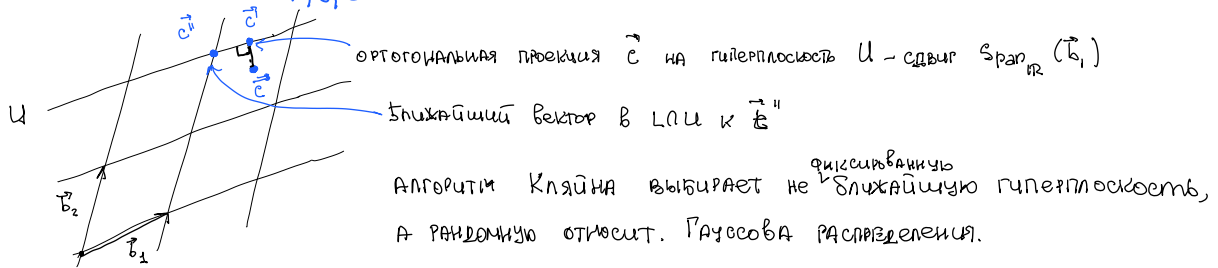 c⃗'' c⃗'
ортогональная проекция c⃗ на гиперплоскость U - сдвиг Span_ℝ (b⃗₁)
c⃗
U
ближайший вектор в L∩U к ''
фиксированную
Алгоритм Кляйна выбирает не ближайшую гиперплоскость,
b⃗₂
а рандомную относит. Гауссова распределения.
b⃗₁